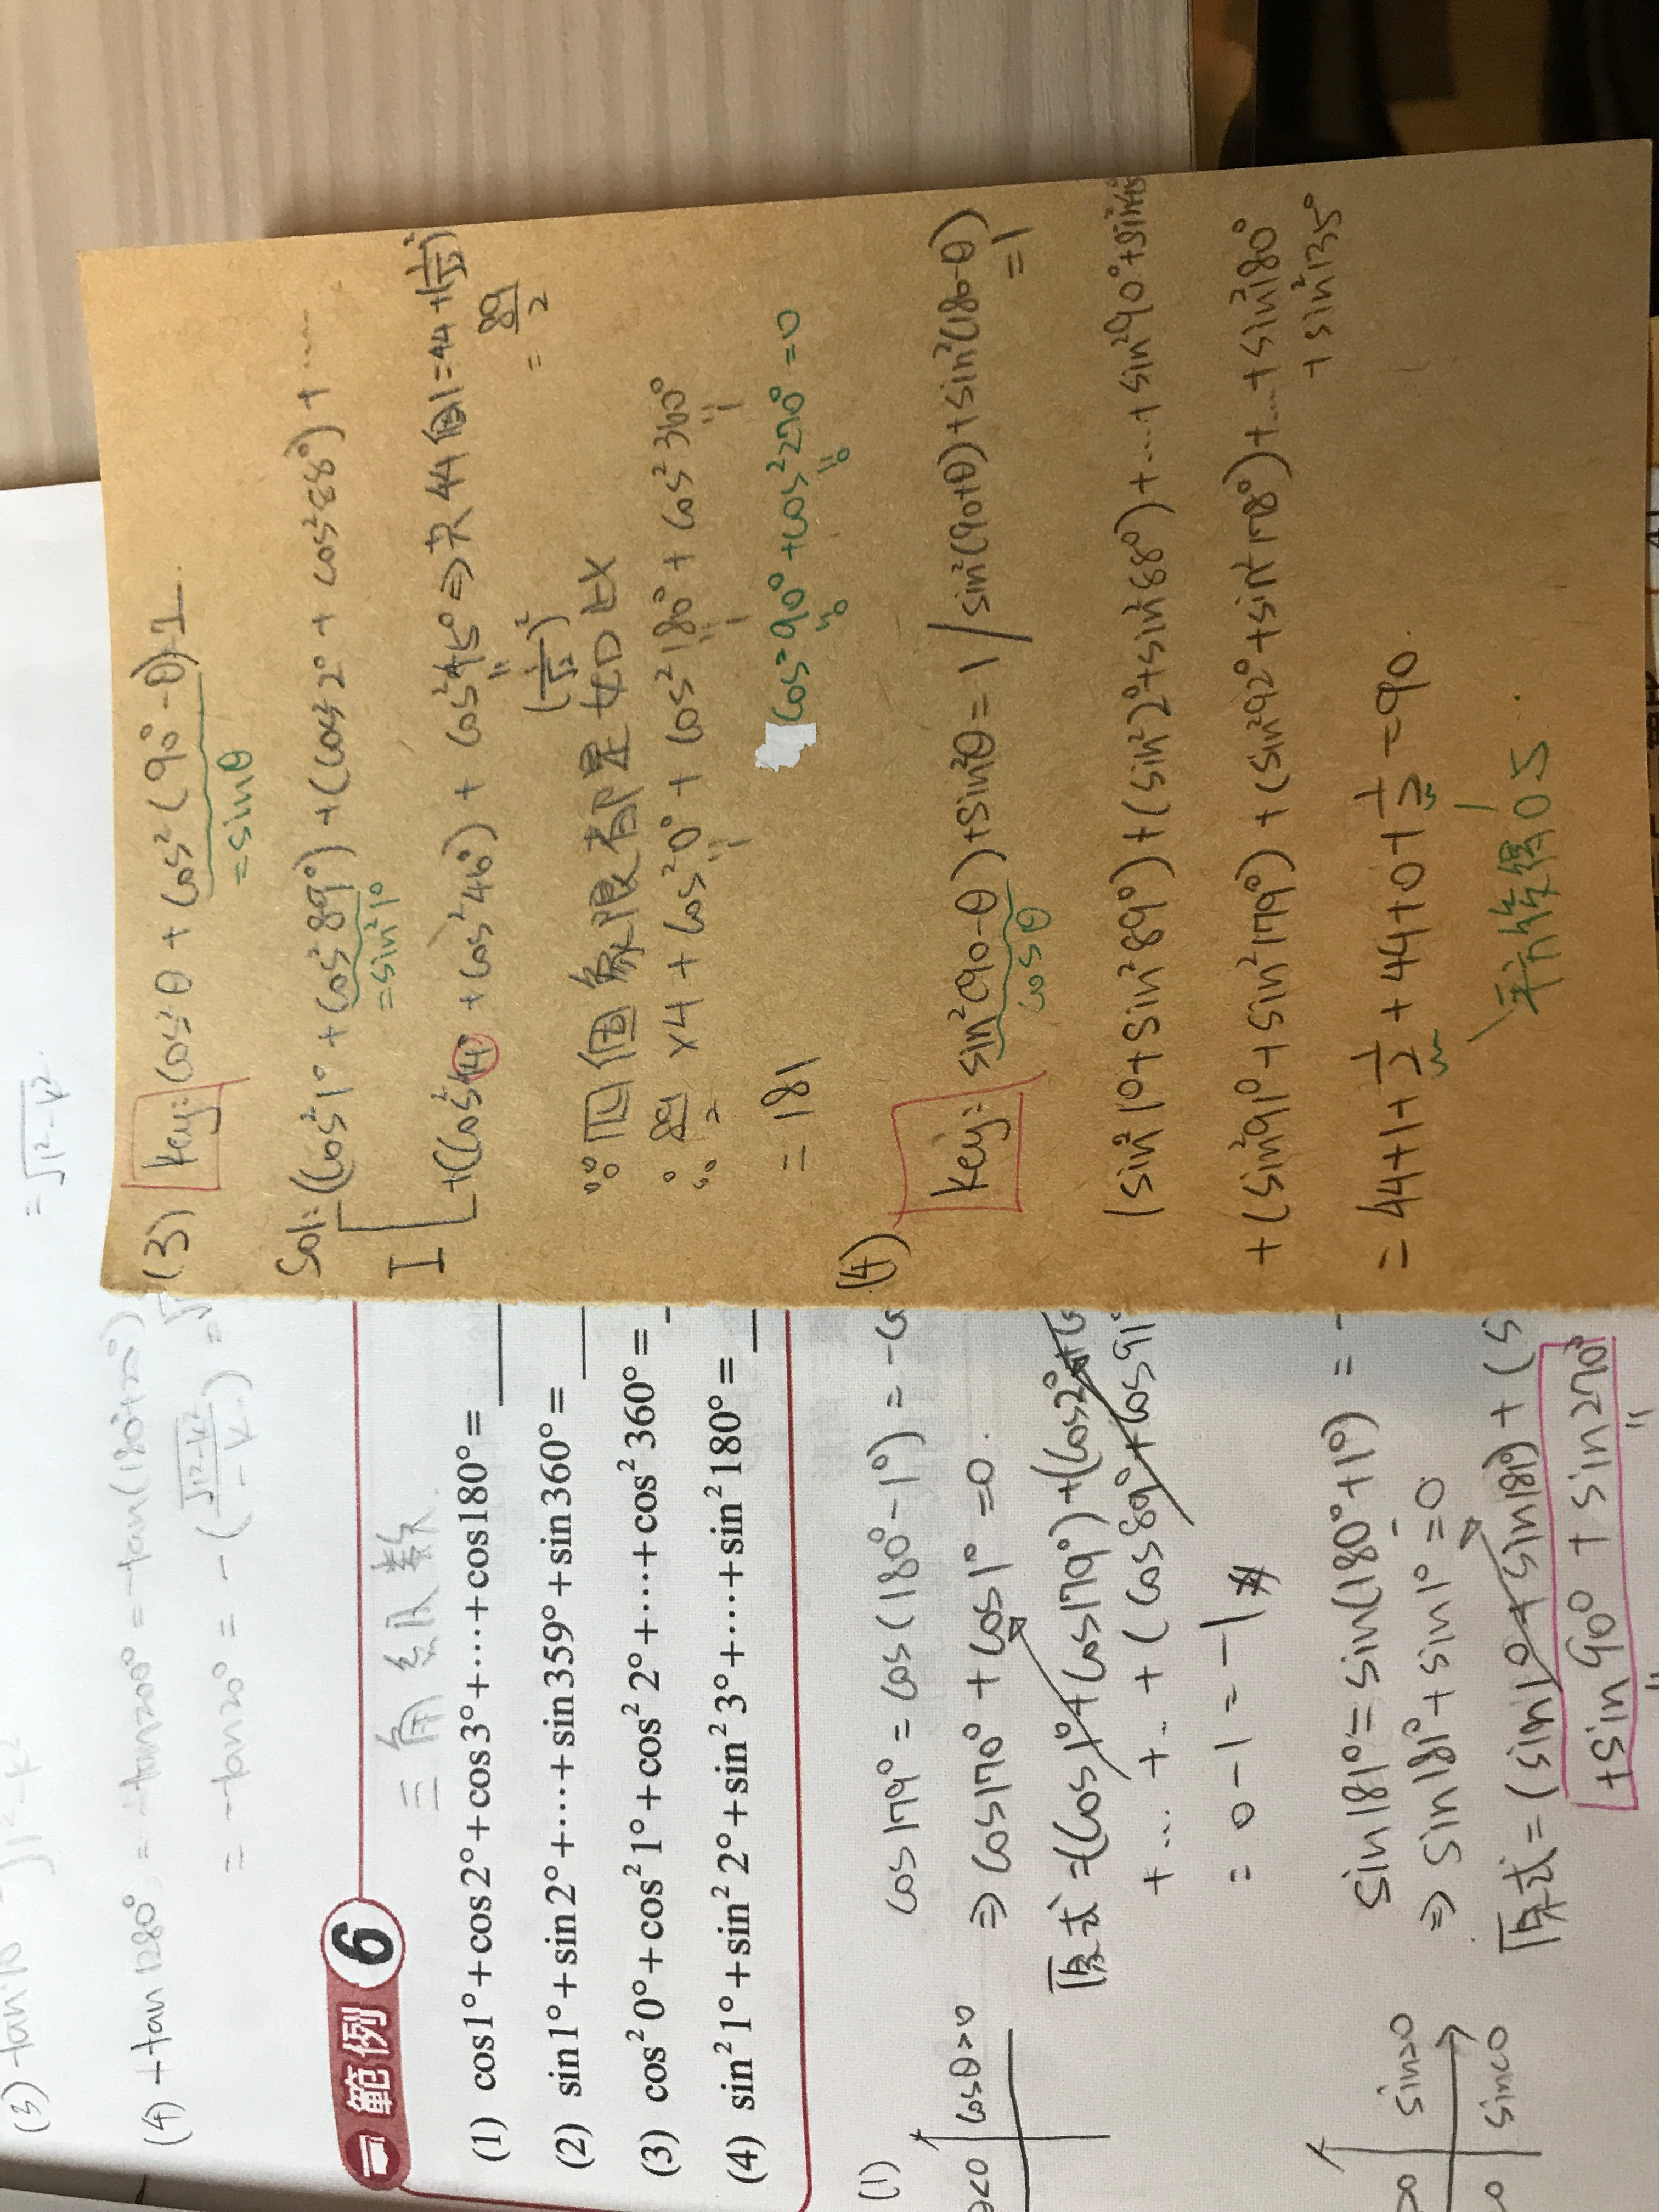 = √(1²-k²)
(3) tan
(4) + tan 1280° = -tan200° = -tan(180°+20°)
= -tan20° = -(√(1²-k²)/-k)
範例 6
三角級數
(1) cos1°+cos2°+cos3°+⋯⋯+cos180°=
(2) sin1°+sin2°+⋯⋯+sin359°+sin360°=
(3) cos²0°+cos²1°+cos²2°+⋯⋯+cos²360°=
(4) sin²1°+sin²2°+sin²3°+⋯⋯+sin²180°=
(1)
cosθ>0
cos179° = cos(180°-1°) = -c
⇒ cos179° + cos1° = 0.
原式 = (cos1°+cos179°)+(cos2°+c
+ ... + .. + (cos89°+cos91°
= 0-1 = -1 #
sin>0
sin<0
sin181° = sin(180°+1°) = -
⇒ sin181° + sin1° = 0
原式 = (sin1°+sin181°) + (s
+sin90° + sin270°
(3) key: cos²θ + cos²(90°-θ)=1.
=sinθ
Sol: (cos²1° + cos²89°) + (cos²2° + cos²88°) + ......
=sin²1°
I +(cos²44° + cos²46°) + cos²45° ⇒ 共44個1 = 44+(1/√2)²
(1/√2)²
= 89/2
∵ 四個象限都是如此
∴ 89/2 ×4 + cos²0° + cos²180° + cos²360°
1 1 1
= 181
cos²90° + cos²270° = 0
0 0
(4) key: sin²(90-θ)+sin²θ = 1 / sin²(90+θ)+sin²(180-θ)
=1
cosθ
(sin²1°+sin²89°)+(sin²2°+sin²88°)+...+sin²90°+sin²45°
+(sin²91°+sin²179°)+(sin²92°+sin²178°)+...+sin²180°
+sin²135°
= 44+1+1/2+44+0+1/2=90.